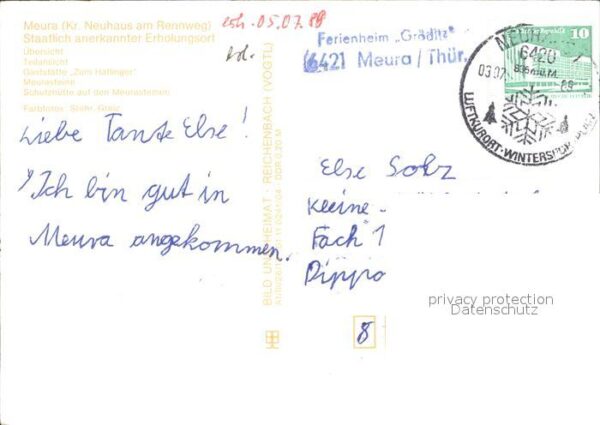 Meura (Kr. Neuhaus am Rennweg)
Staatlich anerkannter Erholungsort
Übersicht
Teilansicht
Gaststätte "Zum Hallinger"
Meurasteine
Schutzhütte auf den Meurasteinen
Farbfotos:
erh. 05.07.89
Ferienheim „Gröditz"
6421 Meura / Thür.
6420
03.07.
89
LUFTKURORT · WINTERSPORTPLATZ
10
Liebe Tante Else!
Ich bin gut in
Meura angekommen.
BILD UND HEIMAT · REICHENBACH (VOGTL)
Else
Kleine
Fach 1
Dippo
8
privacy protection
Datenschutz